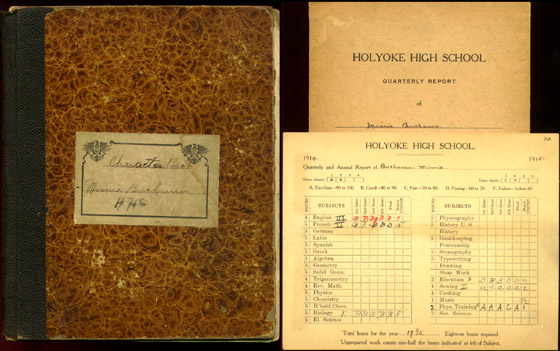 Character Book
Minnie Buchanan
HHS
HOLYOKE HIGH SCHOOL
QUARTERLY REPORT
of
Minnie Buchanan
HOLYOKE HIGH SCHOOL.
1914 1915
Quarterly and Annual Report of Buchanan Minnie
Days absent
Days tardy
A. Excellent—90 to 100. B. Good—80 to 90. C. Fair—70 to 80. D. Passing—60 to 70. F. Failure—below 60
SUBJECTS
4 English III
5 French
5 German
5 Latin
5 Spanish
5 Greek
5 Algebra
5 Geometry
5 Solid Geom.
4 Trigonometry
4 Rev. Math.
5 Physics
5 Chemistry
5 H'hold Chem.
5 Biology
5 El. Science
SUBJECTS
Physiography
History U. S.
History
Bookkeeping
Penmanship
Stenography
Typewriting
Drawing
Shop Work
Elocution
Sewing
Cooking
Music
Phys. Training A A A C A 1
Soc. Science
Total hours for the year Eighteen hours required.
Unprepared work counts one-half the hours indicated at left of Subject.